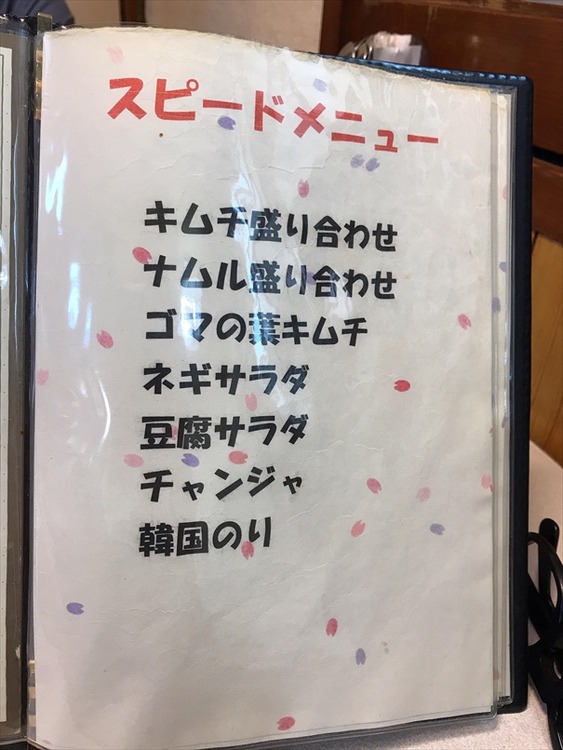 スピードメニュー
キムチ盛り合わせ
ナムル盛り合わせ
ゴマの葉キムチ
ネギサラダ
豆腐サラダ
チャンジャ
韓国のり